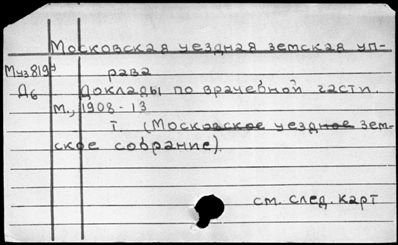 Московская уездная земская уп-
Муз 819 рава
Д6 Доклады по врачебной части.
М., 1908-13
т. (Московское уездное зем-
ское собрание).
см. след. карт